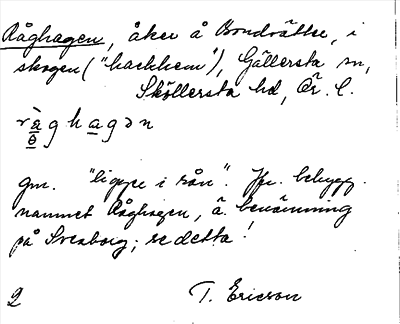 Råghagen, åker å Bondsätter, i
skogen ("backhem"), Gällersta sn,
Sköllersta hd, Ör. l.
gm. "ligger i rån". Jfr. bebygg.
namnet Råghagen, ä. benämning
på Svenborg; se detta!
2 T. Ericson